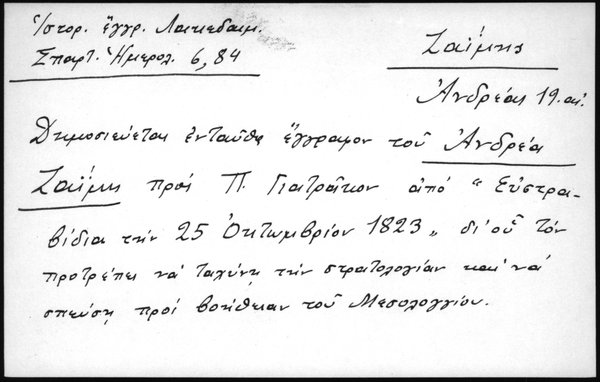 Ἱστορ. ἔγγρ. Λακεδαιμ.
Σπαρτ. Ἡμερολ. 6, 84
Ζαΐμης
Ἀνδρέας 19. αἰ.
Δημοσιεύεται ἐνταῦθα ἔγγραφον τοῦ Ἀνδρέα
Ζαΐμη πρὸς Π. Γιατράκον ἀπὸ "Εὐστρα-
βίδια τὴν 25 Ὀκτωμβρίου 1823" δι' οὗ τὸν
προτρέπει νὰ ταχύνῃ τὴν στρατολογίαν καὶ νὰ
σπεύσῃ πρὸς βοήθειαν τοῦ Μεσολογγίου.